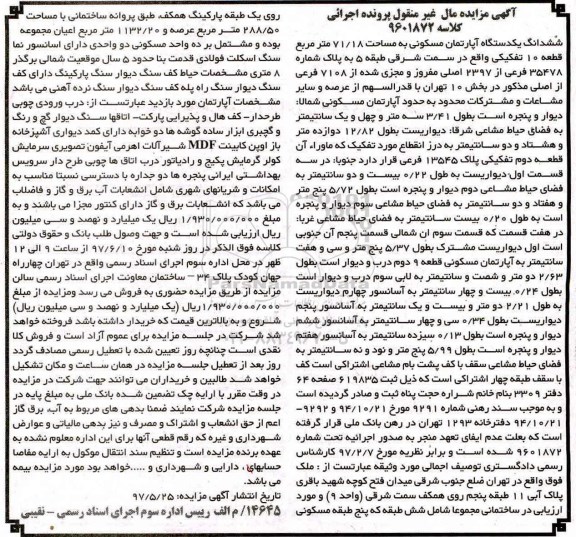 آگهی مزایده مال غیر منقول پرونده اجرائی
کلاسه ۹۶۰۱۸۷۲
ششدانگ یکدستگاه آپارتمان مسکونی به مساحت ۷۱/۱۸ متر مربع
قطعه ۱۰ تفکیکی واقع در سمت شرقی طبقه ۵ به پلاک شماره
۳۵۴۷۸ فرعی از ۲۳۹۷ اصلی مفروز و مجزی شده از ۷۱۰۸ فرعی
از اصلی مذکور در بخش ۱۰ تهران با قدرالسهم از عرصه و سایر
مشاعات و مشترکات محدود به حدود آپارتمان مسکونی شمالا:
دیوار و پنجره است بطول ۳/۴۱ سه متر و چهل و یک سانتیمتر
به فضای حیاط مشاعی شرقا: دیواریست بطول ۱۲/۸۲ دوازده متر
و هشتاد و دو سانتیمتر به درز انقطاع مورد تفکیک که ماوراء آن
قطعه دوم تفکیکی پلاک ۱۳۵۴۵ فرعی قرار دارد جنوبا: در سه
قسمت اول:دیواریست به طول ۰/۲۲ بیست و دو سانتیمتر به
فضای حیاط مشاعی دوم دیوار و پنجره است بطول ۵/۷۲ پنج متر
و هفتاد و دو سانتیمتر به فضای حیاط مشاعی سوم دیوار و پنجره
است به طول ۰/۲۰ بیست سانتیمتر به فضای حیاط مشاعی غربا:
در هفت قسمت که قسمت سوم ان شمالی قسمت پنجم آن جنوبی
است اول دیواریست مشترک بطول ۵/۳۷ پنج متر و سی و هفت
سانتیمتر به آپارتمان مسکونی قطعه ۹ دوم درب و دیوار است بطول
۲/۶۳ دو متر و شصت و سه سانتیمتر به لابی سوم درب و دیوار است
بطول ۰/۲۴ بیست و چهار سانتیمتر به آسانسور چهارم دیواریست
به طول ۲/۲۱ دو متر و بیست و یک سانتیمتر به آسانسور پنجم
دیواریست بطول ۰/۳۴ سی و چهار سانتیمتر به آسانسور ششم
دیوار و پنجره است بطول ۰/۱۳ سیزده سانتیمتر به آسانسور هفتم
دیوار و پنجره است بطول ۵/۹۹ پنج متر و نود و نه سانتیمتر به
فضای حیاط مشاعی سقف با کف پشت بام مشاعی اشتراکی است کف
با سقف طبقه چهار اشتراکی است که ذیل ثبت ۶۱۹۸۳۵ صفحه ۶۴
دفتر ۳۳۰۹ بنام خانم شراره حجت پناه ثبت و صادر گردیده است
و به موجب سند رهنی شماره ۹۲۹۱ مورخ ۹۴/۱۰/۲۱ و ۹۲۹۲-
۹۴/۱۰/۲۱ دفترخانه ۱۲۹۳ تهران در رهن بانک ملی قرار گرفته
است که بعلت عدم ایفای تعهد منجر به صدور اجرائیه تحت شماره
۹۶۰۱۸۷۲ شده است و برابر نظریه مورخ ۹۷/۲/۷ کارشناس
رسمی دادگستری توصیف اجمالی مورد وثیقه عبارتست از : ملک
فوق واقع در تهران ضلع جنوب شرقی میدان فتح کوچه شهید باقری
پلاک آبی ۱۱ طبقه پنجم روی همکف سمت شرقی (واحد ۹) و مورد
ارزیابی در ساختمانی مجموعا شامل شش طبقه که پنج طبقه مسکونی
روی یک طبقه پارکینگ همکف، طبق پروانه ساختمانی با مساحت
۲۸۸/۵۰ متر مربع عرصه و ۱۱۳۲/۲۰ متر مربع اعیان مجموعه
بوده و مشتمل بر ده واحد مسکونی دو واحدی دارای اسانسور نما
سنگ اسکلت فولادی قدمت بنا حدود ۵ سال موقعیت شمالی برگذر
۸ متری مشخصات حیاط کف سنگ دیوار سنگ پارکینگ دارای کف
سنگ دیوار سنگ راه پله کف سنگ دیوار سنگ نرده آهنی می باشد
مشخصات آپارتمان مورد بازدید عبارتست از: درب ورودی چوبی
طرحدار- کف هال و پذیرایی پارکت- اتاقها سنگ دیوار گچ و رنگ
و گچبری ابزار ساده گوشه ها دو خوابه دارای کمد دیواری آشپزخانه
باز اوپن کابینت MDF شیرآلات اهرمی آیفون تصویری سرمایش
کولر گرمایش پکیج و رادیاتور درب اتاق ها چوبی طرح دار سرویس
بهداشتی ایرانی پنجره ها دو جداره با دسترسی نسبتا مناسب به
امکانات و شریانهای شهری شامل انشعابات آب برق و گاز و فاضلاب
می باشد که انشعابات برق و گاز دارای کنتور مجزا می باشند و به
مبلغ ۱/۹۳۰/۰۰۰/۰۰۰ ریال یک میلیارد و نهصد و سی میلیون
ریال ارزیابی شده است و جهت وصول طلب بانک و حقوق دولتی
کلاسه فوق الذکر در روز شنبه مورخ ۹۷/۶/۱۰ از ساعت ۹ الی ۱۲
ظهر در محل اداره سوم اجرای اسناد رسمی واقع در تهران چهارراه
جهان کودک پلاک ۳۴ – ساختمان معاونت اجرای اسناد رسمی سالن
مزایده از طریق مزایده حضوری به فروش می رسد ومزایده از مبلغ
۱/۹۳۰/۰۰۰/۰۰۰ریال (یک میلیارد و نهصد و سی میلیون ریال)
شروع و به بالاترین قیمت که خریدار داشته باشد فروخته خواهد
شد شرکت در جلسه مزایده برای عموم آزاد است و فروش کلا
نقدی است چنانچه روز تعیین شده با تعطیل رسمی مصادف گردد
روز بعد از تعطیل جلسه مزایده در همان ساعت و مکان تشکیل
خواهد شد طالبین و خریداران می توانند جهت شرکت در مزایده
در وقت مقرر با ارایه چک تضمین شده بانک ملی به مبلغ پایه در
جلسه مزایده شرکت نمایند ضمنا بدهی های مربوط به آب، برق گاز
اعم از حق انشعاب و اشتراک و مصرف و نیز بدهی مالیاتی و عوارض
شهرداری و غیره که رقم قطعی آنها برای این اداره معلوم نشده به
عهده برنده مزایده است و تنظیم سند انتقال موکول به ارایه مفاصا
حسابهای ، دارایی و شهرداری و .....خواهد بود مورد مزایده بیمه
می باشد.
تاریخ انتشار آگهی مزایده: ۹۷/۵/۲۵
۱۴۶۴۵/ م الف رییس اداره سوم اجرای اسناد رسمی – نقیبی